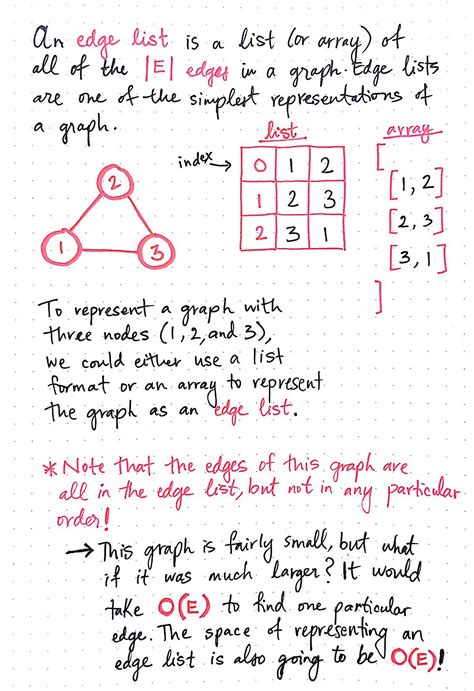 An edge list is a list (or array) of
all of the |E| edges in a graph. Edge lists
are one of the simplest representations of
a graph.
list
array
index →
0 1 2
1 2 3
2 3 1
[
[1, 2]
[2, 3]
[3, 1]
]
2
1
3
To represent a graph with
three nodes (1, 2, and 3),
we could either use a list
format or an array to represent
the graph as an edge list.
* Note that the edges of this graph are
all in the edge list, but not in any particular
order!
→ This graph is fairly small, but what
if it was much larger? It would
take O(E) to find one particular
edge. The space of representing an
edge list is also going to be O(E)!